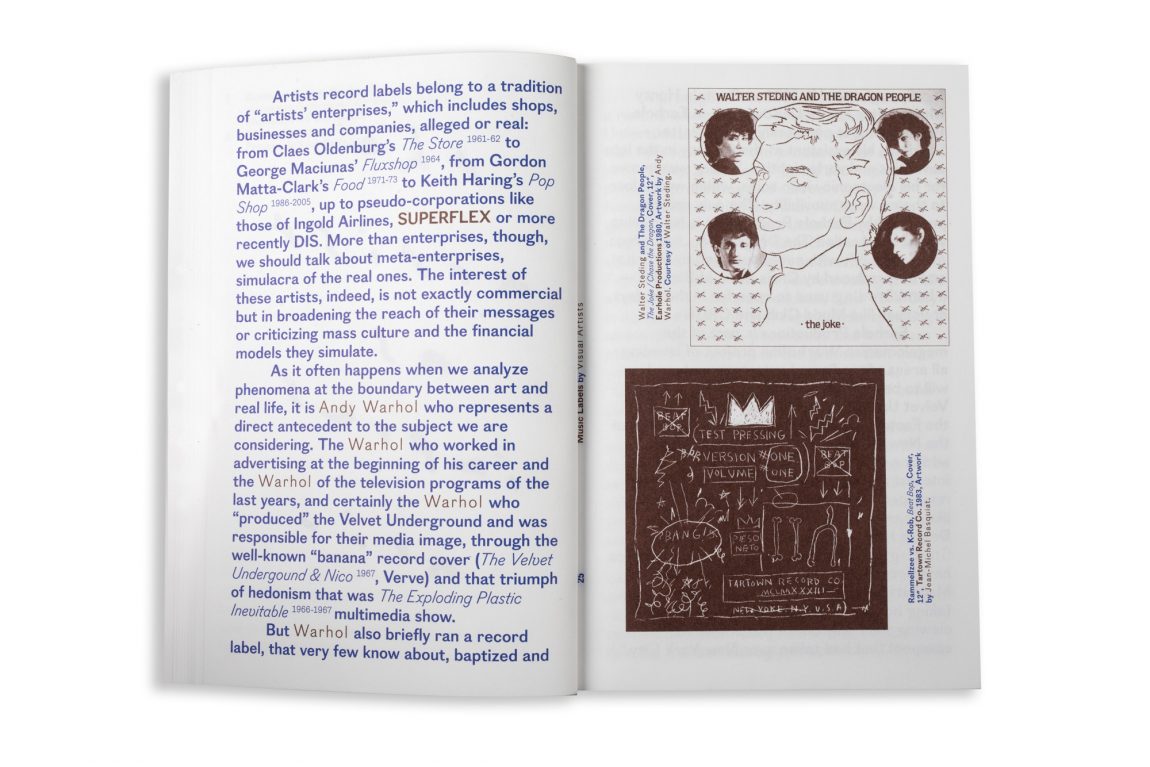 Artists record labels belong to a tradition
of “artists’ enterprises,” which includes shops,
businesses and companies, alleged or real:
from Claes Oldenburg’s The Store 1961-62 to
George Maciunas’ Fluxshop 1964, from Gordon
Matta-Clark’s Food 1971-73 to Keith Haring’s Pop
Shop 1986-2005, up to pseudo-corporations like
those of Ingold Airlines, SUPERFLEX or more
recently DIS. More than enterprises, though,
we should talk about meta-enterprises,
simulacra of the real ones. The interest of
these artists, indeed, is not exactly commercial
but in broadening the reach of their messages
or criticizing mass culture and the financial
models they simulate.
As it often happens when we analyze
phenomena at the boundary between art and
real life, it is Andy Warhol who represents a
direct antecedent to the subject we are
considering. The Warhol who worked in
advertising at the beginning of his career and
the Warhol of the television programs of the
last years, and certainly the Warhol who
“produced” the Velvet Underground and was
responsible for their media image, through the
well-known “banana” record cover (The Velvet
Undergound & Nico 1967, Verve) and that triumph
of hedonism that was The Exploding Plastic
Inevitable 1966-1967 multimedia show.
But Warhol also briefly ran a record
label, that very few know about, baptized and
Music Labels by Visual Artists
25
Walter Steding and The Dragon People,
The Joke / Chase the Dragon, Cover, 12",
Earhole Productions 1980, Artwork by Andy
Warhol. Courtesy of Walter Steding.
WALTER STEDING AND THE DRAGON PEOPLE
· the joke ·
BEAT
BOP
TEST PRESSING
VERSION #ONE
VOLUME ONE
BEAT
BOP
BANG!
PESO
NETO
TARTOWN RECORD CO
MCLMXXXIII
NEW YORK. N.Y U.S.A
Rammellzee vs. K-Rob, Beat Bop, Cover,
12", Tartown Record Co. 1983, Artwork
by Jean-Michel Basquiat.